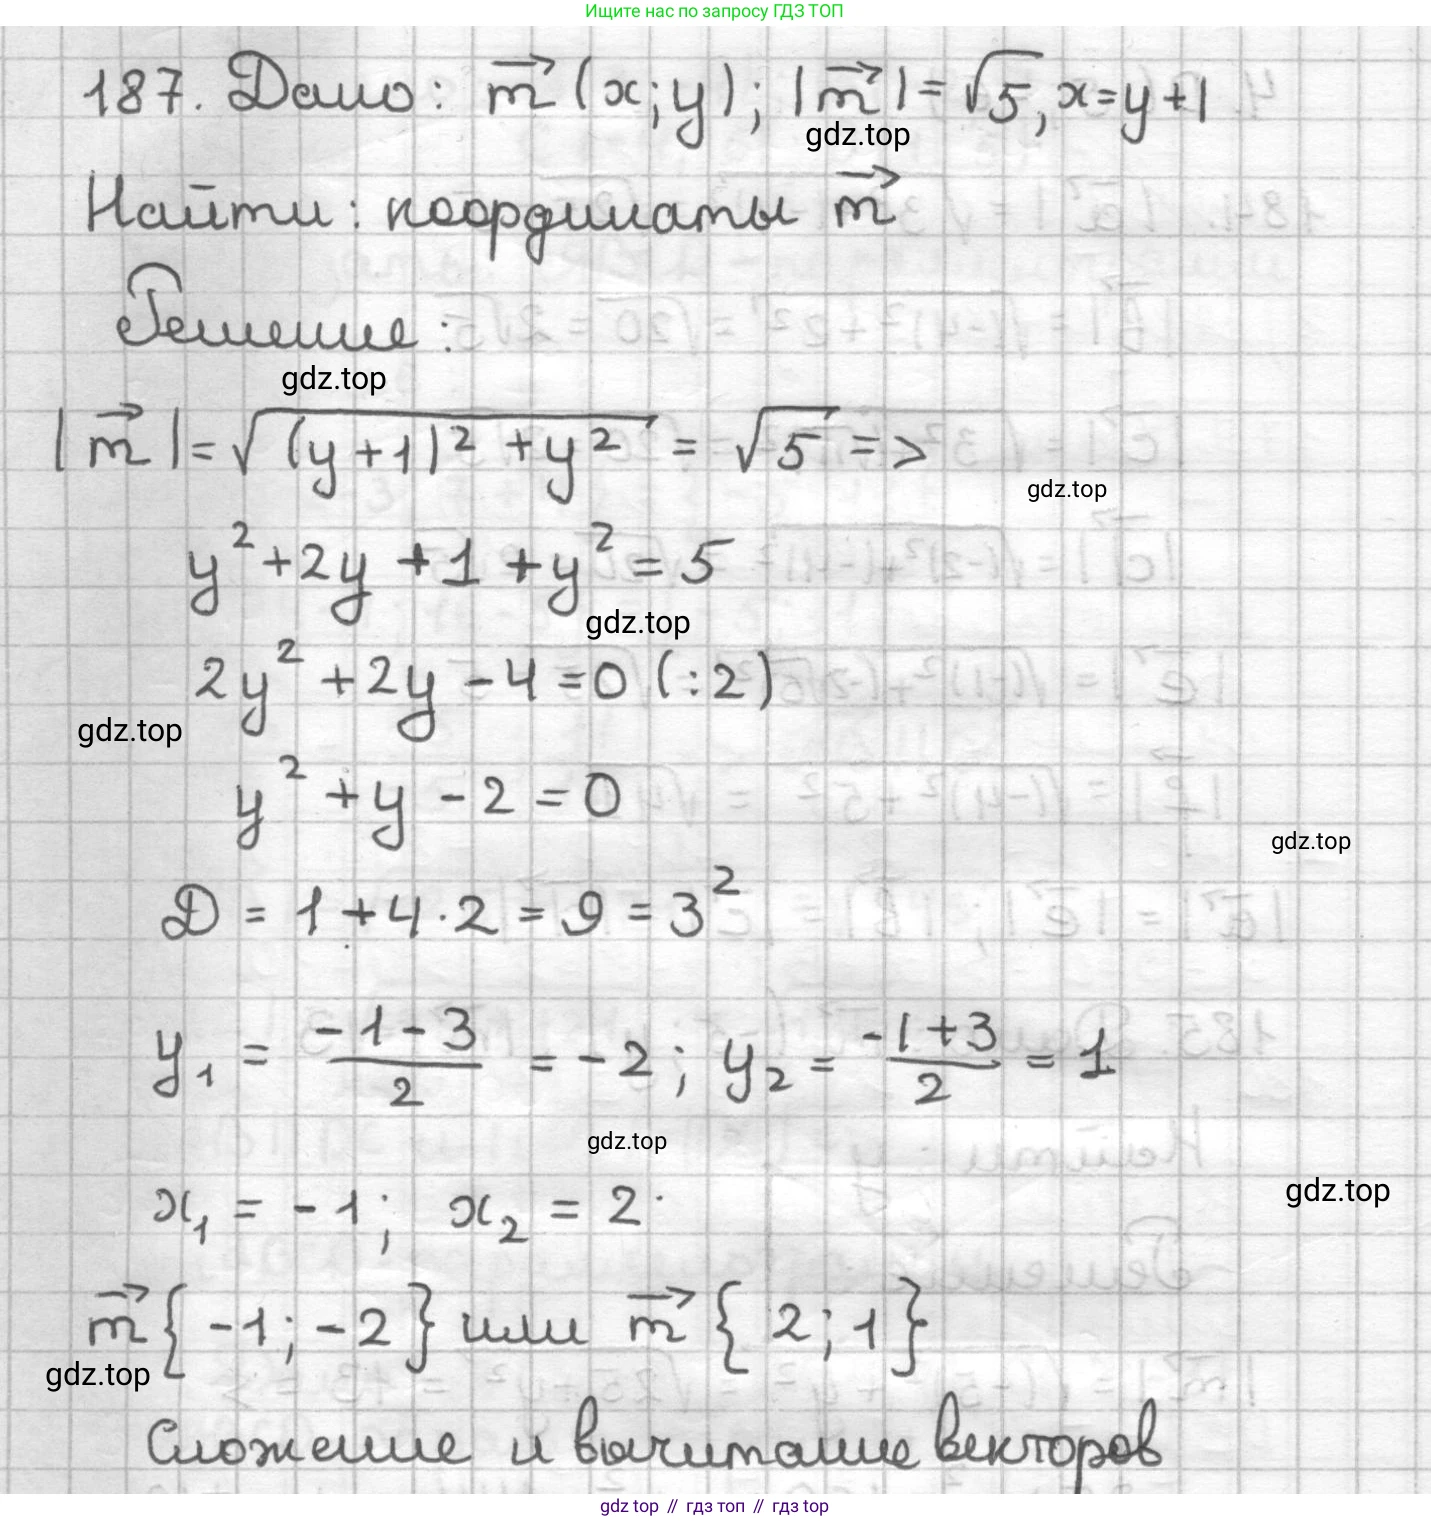 Ищите нас по запросу ГДЗ ТОП
187. Дано: m⃗ (x; y); |m⃗| = √5, x = y + 1
gdz.top
Найти: координаты m⃗
Решение:
gdz.top
|m⃗| = √((y + 1)² + y²) = √5 =>
gdz.top
y² + 2y + 1 + y² = 5
gdz.top
2y² + 2y - 4 = 0 (:2)
gdz.top
y² + y - 2 = 0
gdz.top
D = 1 + 4 · 2 = 9 = 3²
y₁ = (-1 - 3)/2 = -2; y₂ = (-1 + 3)/2 = 1
gdz.top
gdz.top
x₁ = -1; x₂ = 2
m⃗ {-1; -2} или m⃗ {2; 1}
gdz.top
Сложение и вычитание векторов
gdz top // гдз топ // gdz top